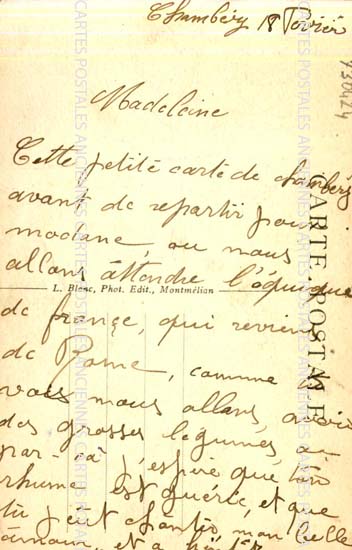 Chambéry 18 Février
930424
Madeleine
Cette petite carte de chambéry
avant de repartir pour
modane, ou nous
allons attendre l'équipe
L. Blanc, Phot. Edit., Montmélian
de france, qui revient
de Rome, comme tu
vois nous allons, avoir
des grosses légumes, au
par-ça j'espère que, ton
rhume est guérie, et que
tu peut chanter, mon
amour, et a
CARTE POSTALE
CARTES POSTALES ANCIENNES